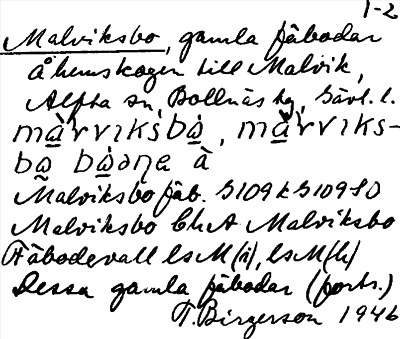 1-2
Malviksbo, gamla fäbodar
å hemskogen till Malvik,
Alfta sn, Bollnäs tg, Gävl. l.
màrviksbo, màrviks-
bo bòdna à
Malviksbo fäb. G109 k G109 SO
Malviksbo ChA Malviksbo
Fäbodevall lsM(ä), lsM(h)
Dessa gamla fäbodar (forts.)
T. Birgerson 1946